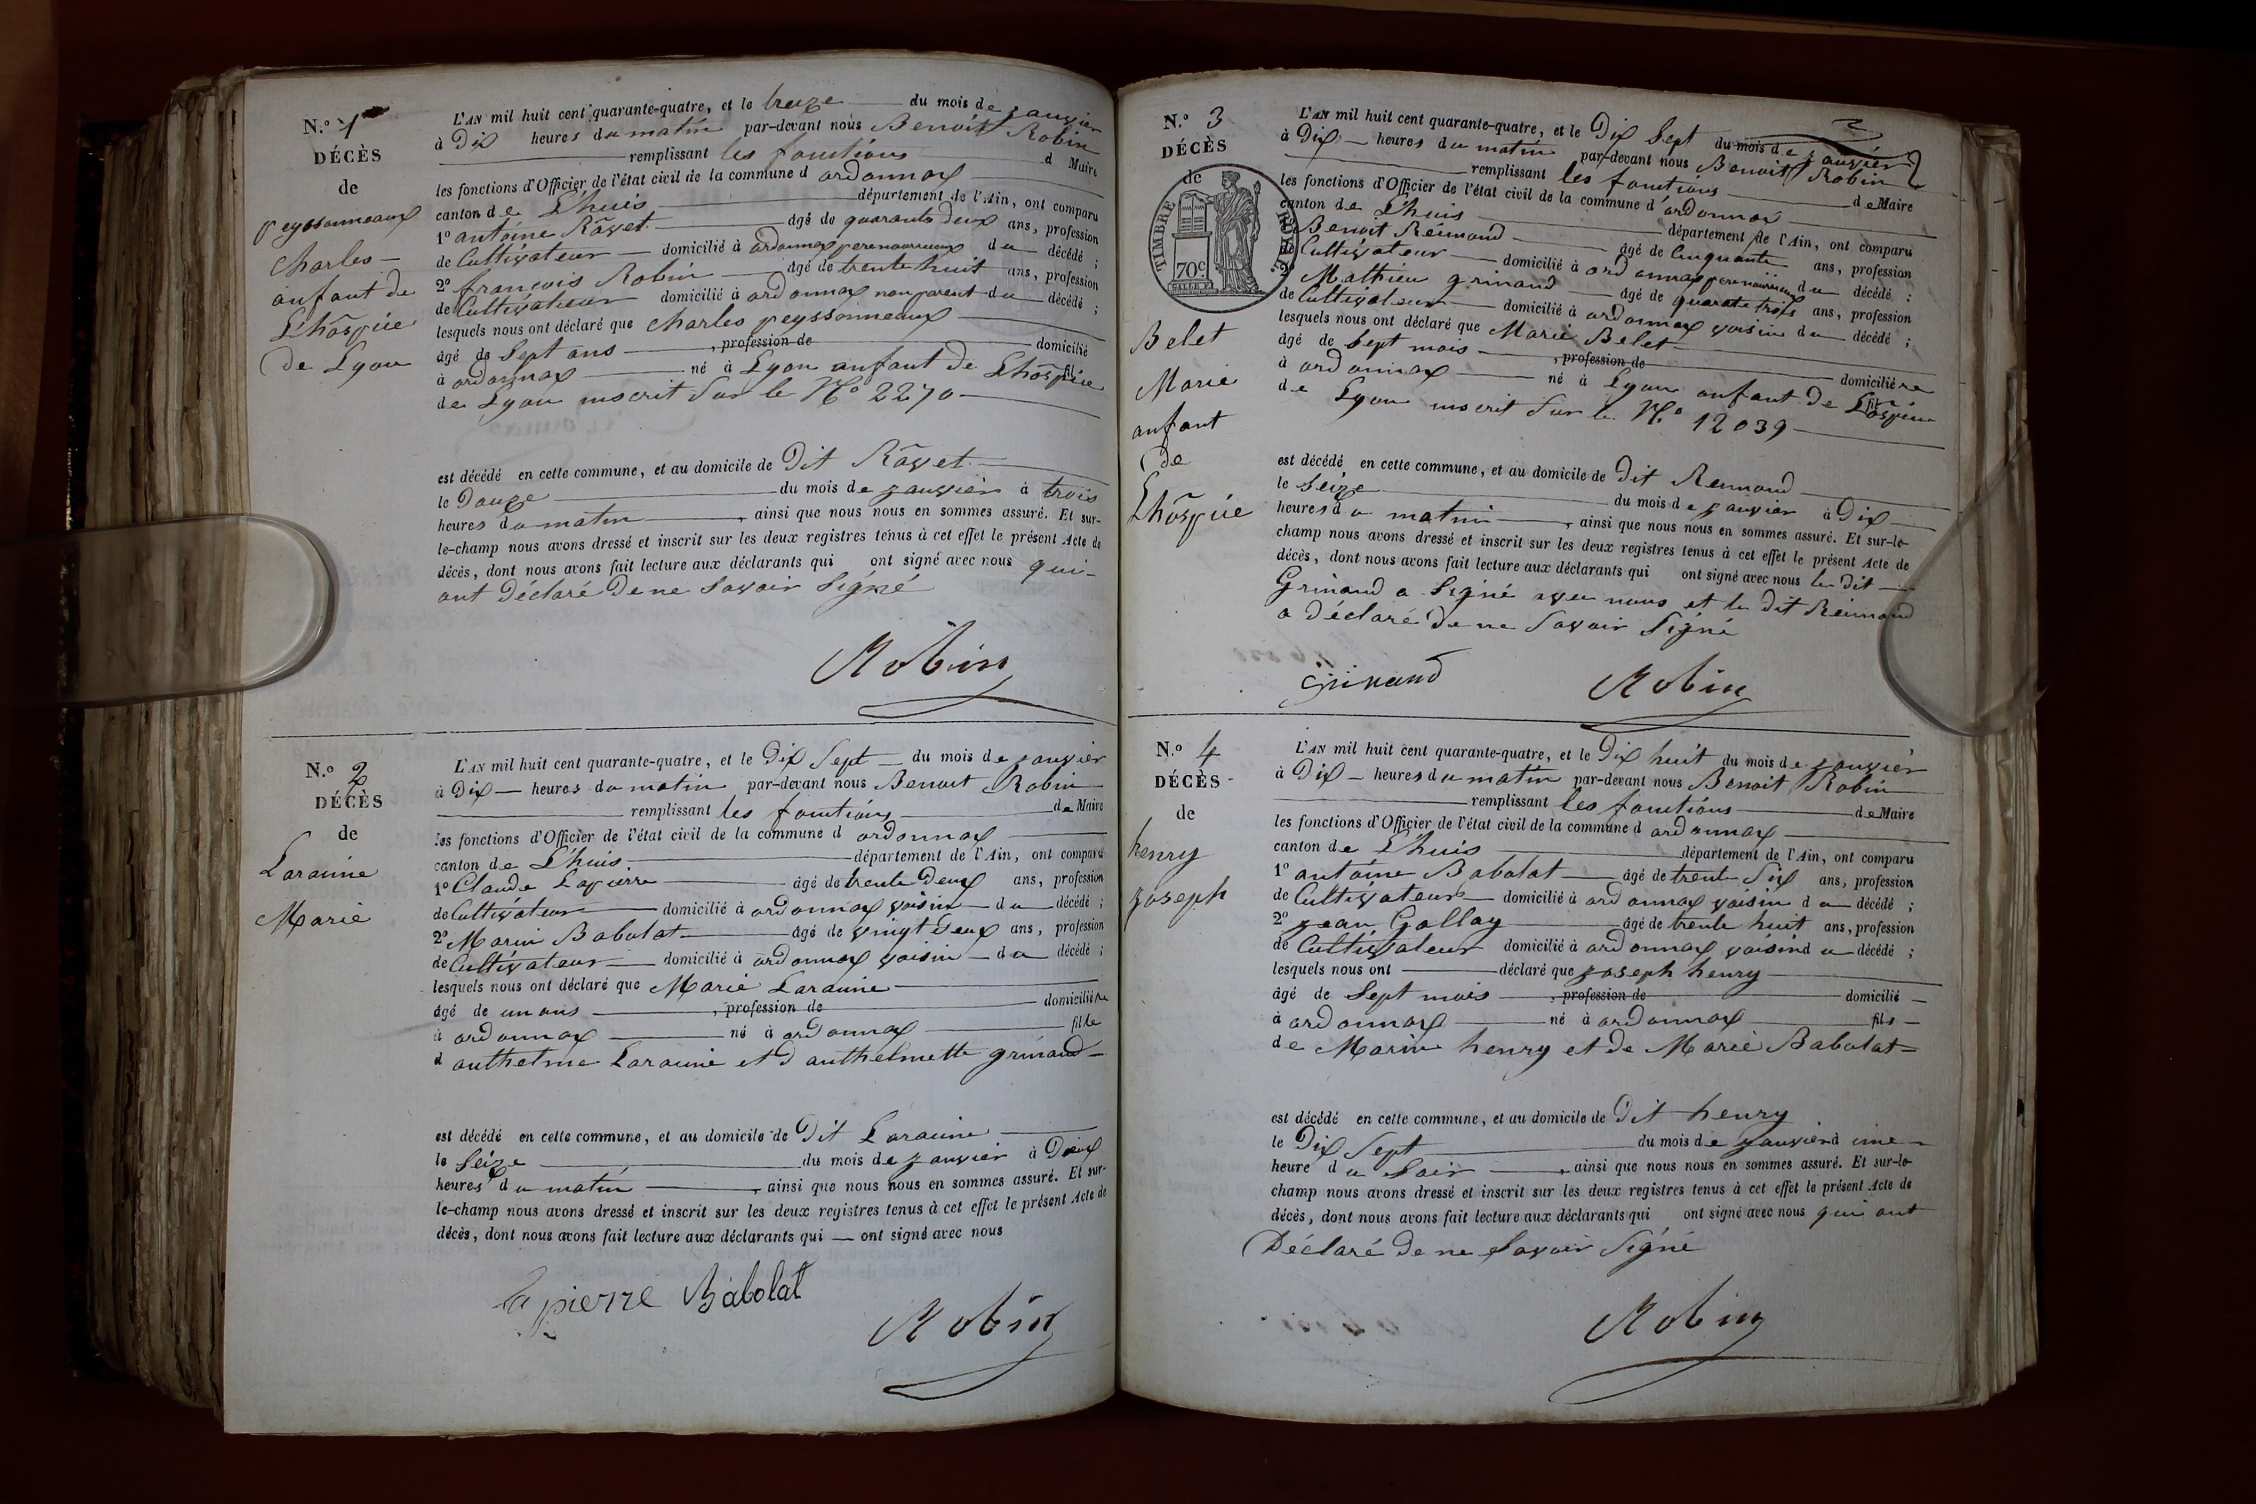 N.º 1
DÉCÈS
de
peyssonneaux
Charles
enfant de
L'hôspice
de Lyon
L'AN mil huit cent quarante-quatre, et le treize du mois de janvier
à Dix heures du matin par-devant nous Benoît Robin
remplissant les fonctions d Maire
les fonctions d'Officier de l'état civil de la commune d ordonnax
canton de L'huis département de l'Ain, ont comparu
1º antoine Ravet âgé de quarante deux ans, profession
de Cultivateur domicilié à ordonnax perenourricier du décédé ;
2º françois Robin âgé de trente huit ans, profession
de Cultivateur domicilié à ordonnax non parent du décédé ;
lesquels nous ont déclaré que Charles peyssonneaux
âgé de Sept ans , profession de domicilié
à ordonnax né à Lyon enfant de L'hôspice fil
de Lyon inscrit Sur le Nº 2270
est décédé en cette commune, et au domicile de Dit Ravet
le Douze du mois de janvier à trois
heures du matin , ainsi que nous nous en sommes assuré. Et sur-
le-champ nous avons dressé et inscrit sur les deux registres tenus à cet effet le présent Acte de
décès, dont nous avons fait lecture aux déclarants qui ont signé avec nous qui
ont Déclaré De ne Savoir Signé
Robin
N.º 2
DÉCÈS
de
Laraine
Marie
L'AN mil huit cent quarante-quatre, et le Dix Sept du mois de janvier
à Dix heures du matin par-devant nous Benoit Robin
remplissant les fonctions de Maire
les fonctions d'Officier de l'état civil de la commune d ordonnax
canton de L'huis département de l'Ain, ont comparu
1º Claude Lapierre âgé de trente Deux ans, profession
de Cultivateur domicilié à ordonnax voisin du décédé ;
2º Marin Babolat âgé de vingt Deux ans, profession
de Cultivateur domicilié à ordonnax voisin du décédé ;
lesquels nous ont déclaré que Marie Laraine
âgé de un ans , profession de domicilié
à ordonnax né à ordonnax fille
d anthelme Laraine et D anthelmette grinand
est décédé en cette commune, et au domicile de Dit Laraine
le Seize du mois de janvier à Deux
heures du matin , ainsi que nous nous en sommes assuré. Et sur-
le-champ nous avons dressé et inscrit sur les deux registres tenus à cet effet le présent Acte de
décès, dont nous avons fait lecture aux déclarants qui ont signé avec nous
la pierre Babolat
Robin
2
N.º 3
DÉCÈS
de
TIMBRE ROYAL
70c
Belet
Marie
enfant
de
L'hôspice
L'AN mil huit cent quarante-quatre, et le Dix Sept du mois de janvier
à Dix heures du matin par-devant nous Benoit Robin
remplissant les fonctions de Maire
les fonctions d'Officier de l'état civil de la commune d'ordonnax
canton de L'huis département de l'Ain, ont comparu
Benoit Reimond âgé de Cinquante ans, profession
de Cultivateur domicilié à ordonnax perenourricier du décédé ;
2º Mathieu grinand âgé de quarate trois ans, profession
de Cultivateur domicilié à ordonnax voisin du décédé ;
lesquels nous ont déclaré que Marie Belet
âgé de Sept mois , profession de domicilié
à ordonnax né à Lyon enfant de L'hôspice fil
de Lyon inscrit Sur le Nº 12039
est décédé en cette commune, et au domicile de Dit Reimond
le Seize du mois de janvier à Dix
heures du matin , ainsi que nous nous en sommes assuré. Et sur-le-
champ nous avons dressé et inscrit sur les deux registres tenus à cet effet le présent Acte de
décès, dont nous avons fait lecture aux déclarants qui ont signé avec nous le Dit
Grinand a Signé avec nous et le Dit Reimond
a Déclaré De ne Savoir Signé
Grinand Robin
N.º 4
DÉCÈS
de
henry
joseph
L'AN mil huit cent quarante-quatre, et le Dix huit du mois de janvier
à Dix heures du matin par-devant nous Benoit Robin
remplissant les fonctions de Maire
les fonctions d'Officier de l'état civil de la commune d ordonnax
canton de L'huis département de l'Ain, ont comparu
1º antoine Babolat âgé de trente Six ans, profession
de Cultivateur domicilié à ordonnax voisin du décédé ;
2º jean Gollay âgé de trente huit ans, profession
de Cultivateur domicilié à ordonnax voisin du décédé ;
lesquels nous ont déclaré que joseph henry
âgé de Sept mois , profession de domicilié
à ordonnax né à ordonnax fils
de Marin henry et de Marie Babolat
est décédé en cette commune, et au domicile de Dit henry
le Dix Sept du mois de janvier à une
heure du Soir , ainsi que nous nous en sommes assuré. Et sur-le-
champ nous avons dressé et inscrit sur les deux registres tenus à cet effet le présent Acte de
décès, dont nous avons fait lecture aux déclarants qui ont signé avec nous qui ont
Déclaré De ne Savoir Signé
Robin